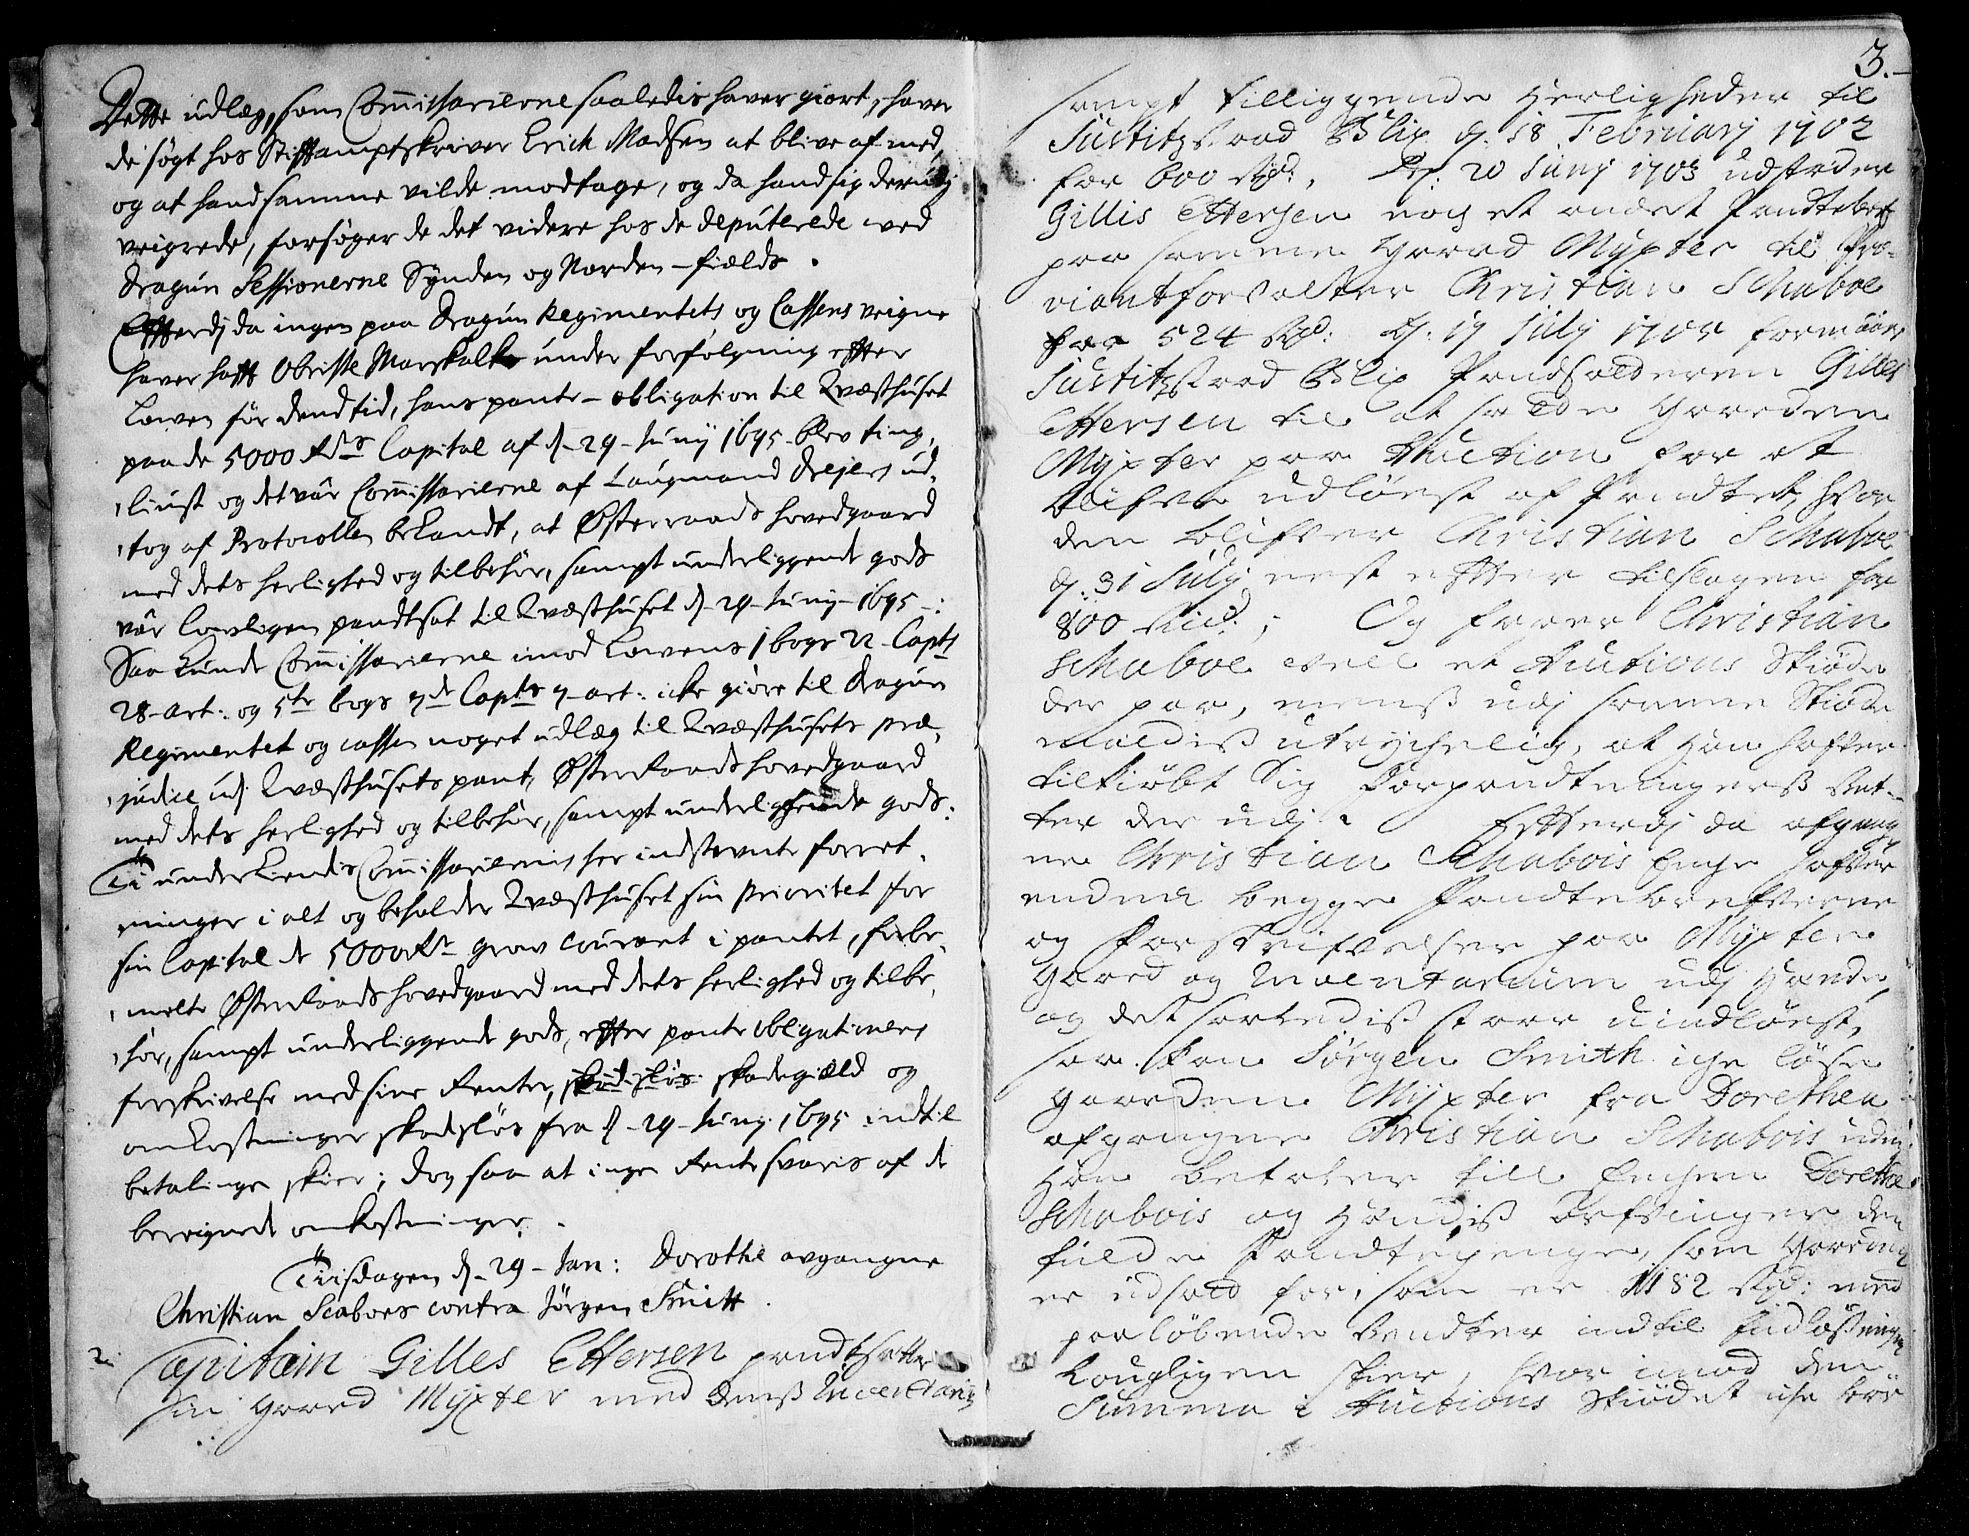 Dette udlæg, som Commissarierne saaledis haver giort, haver
de søgt hos Stiftamptskriver Erich Madsen at blive af med,
og at hand samme vilde modtage, og da hand sig derudj
veigrede, forsøger de det videre hos de deputerede ved
dragun Sessionerne Synden og Norden-fields.
Efterdj da ingen paa dragun Regimentets og Cassens veigne
haver hafft Obriste Marskalk under forfølgning efter
Lowen før dend tid, hans pante-obligation til Qvæsthuset
paa de 5000 Rdrs Capital af d. 29 Junij 1695 blev ting,
liust og det vår Commissarierne af Laugmand drejers ud,
tog af Protocollen bekandt, at Østeraads hovedgaard
med dets herlighed og tilbehör, sampt underliggende gods
vår lovligen pandtsat til Qvæsthuset d. 29 Junij 1695:
Saa kunde Commissarierne imod Lowens 1 bogs 22 Capts
28 art: og 5te bogs 7de Capts 7 art: icke giöre til dragun
Regimentet og cassen noget udlæg til Qvæsthusets præ,
judice udj Qvæsthusets pant, Østeraads hovedgaard
med dets herlighed og tilbehör, sampt underliggende gods:
Ti underkiendis Commissariernis her indstevnte forret,
ninger i alt og beholder Qvæsthuset sin prioritet for
sin Capital de 5000 Rdr grov courant i pantet, forbe,
melte Østeraads hovedgaard med dets herlighed og tilbe,
hör, sampt underliggende gods, efter pante obligationens
forskrivelse med sine Renter, skadeslös skadegiæld og
omkostninger skadeslös fra d. 29 Junij 1695 indtil
betalinge skier; dog saa at ingen Rente svaris af de
beregnede omkostninger.
Tiisdagen d. 29 Jan: Dorothe avgangne
Christian Scaboes contra Jörgen Smitt.
2. Capitain Gilles Ettersen pandtsætter
sin gaard Myxter med denß Inventario
3.
sampt tilliggende Herligheder til
Justitzraad Blix d. 18 Februarj 1702
for 600 Rdr:, D: 20 Junj 1703 udsteder
Gillis Ettersen noch et andet Pandtebref
paa samme Gaard Myxter til Pro-
viantforvalter Christian Schaboe
for 524 Rd: d: 17 Julj 1705 formaaer
Justitzraad Blix Pandsælderen Gilles
Ettersen til at sælde Gaarden
Myxter paa Auction for at
blifve udlöest af Pandtet, hvor
den blifver Christian Schaboe
d: 31 Julj nest efter tilslagen for
800 Rd:; Og faaer Christian
Schaboe vell et Auctions Skiøde
der paa, menß udj samme Skiøde
meldiß utrychelig, at han hafver
tilkiöbt sig forpandtningerß Ret-
ter der udj. Efterdj da afgang
ne Christian Schabois Enche hafver
endnu begge Pandtebrefverne
og forskrifvelser paa Myxter
Gaard og Inventarium udj Hænde,
og det saaledis staar uindlöest,
saa kan Jörgen Smith iche löse
gaarden Myxter fra Dorethea
afgangne Christian Schabois uden
han betaler till Enchen Dorethe
Schabois og Hendiß Arfvinger den
fulde Pandtepenge, som Gaarden
er udsatt for, som er 1182 Rd: med
paaløbende Rendter indtil Indlößningen
lougligen skier, hvor imod den
Summa i Auctions Skiødet iche bör